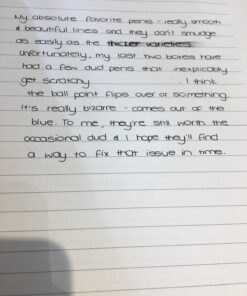 My absolute favorite pens - really smooth
& beautiful lines and they don't smudge
as easily as the thicker varieties.
Unfortunately, my last two boxes have
had a few dud pens that inexplicably
get scratchy ..... I think
the ball point flips over or something.
It's really bizarre - comes out of the
blue. To me, they're still worth the
occasional dud & I hope they'll find
a way to fix that issue in time.